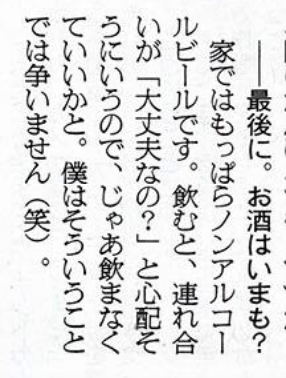 ――最後に。お酒はいまも？
家ではもっぱらノンアルコー
ルビールです。飲むと、連れ合
いが「大丈夫なの？」と心配そ
うにいうので、じゃあ飲まなく
ていいかと。僕はそういうこと
では争いません（笑）。